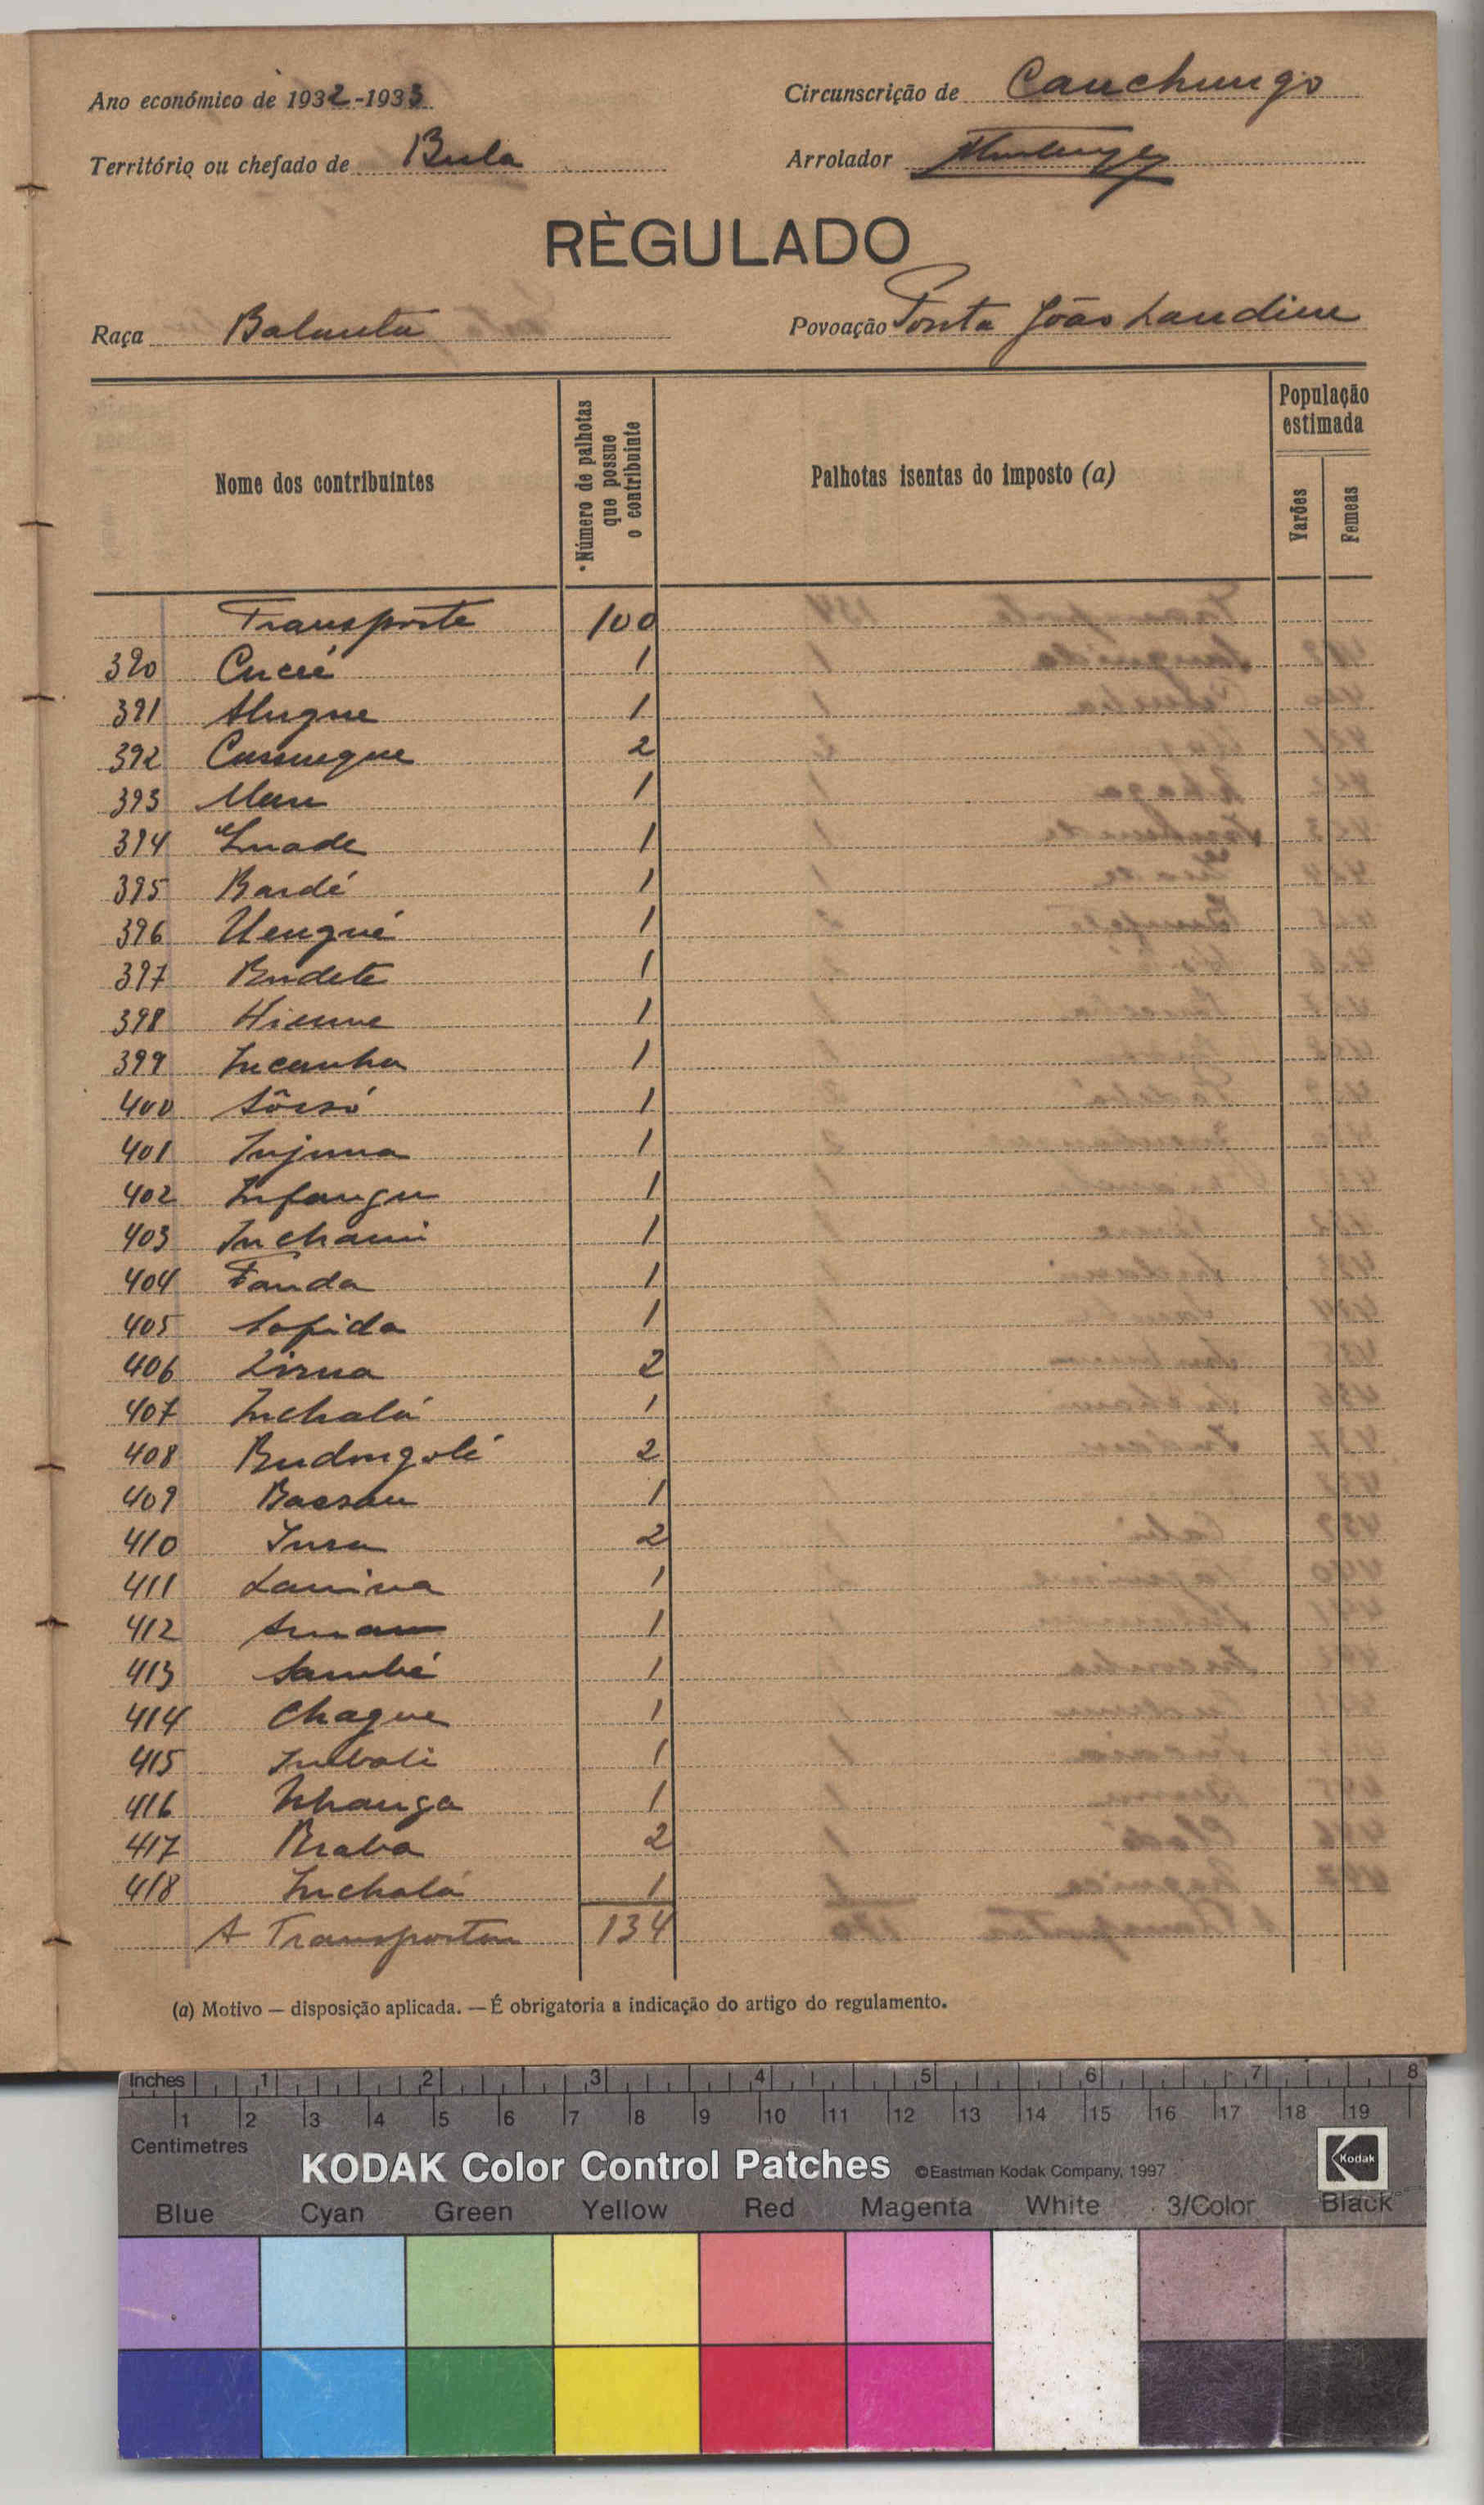 Ano económico de 1932-1933
Circunscrição de Cauchungo
Território ou chefado de Bula
Arrolador
RÈGULADO
Raça Balanta
Povoação Ponta João Landim
Nome dos contribuintes
Número de palhotas que possue o contribuinte
Palhotas isentas do imposto (a)
População estimada
Varões
Femeas
Transporte 100
390 Cucué 1
391 Alugne 1
392 Cussuegue 2
393 Man 1
394 Enade 1
395 Bardé 1
396 Uengué 1
397 Budete 1
398 Hieume 1
399 Incanha 1
400 Sôssó 1
401 Injuma 1
402 Infangu 1
403 Inchami 1
404 Fanda 1
405 Sofida 1
406 Lirna 2
407 Inchalá 1
408 Budongolé 2
409 Bacsau 1
410 Insa 2
411 Laniva 1
412 1
413 Sambé 1
414 Chague 1
415 Imboli 1
416 Nhanga 1
417 Braba 2
418 Inchalá 1
A Transportar 134
(a) Motivo — disposição aplicada. — É obrigatoria a indicação do artigo do regulamento.
Inches 1 2 3 4 5 6 7 8
1 2 3 4 5 6 7 8 9 10 11 12 13 14 15 16 17 18 19
Centimetres
KODAK Color Control Patches ©Eastman Kodak Company, 1997 Kodak
Blue Cyan Green Yellow Red Magenta White 3/Color Black